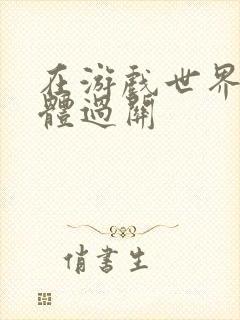 在游戏世界
體過關
俏書生